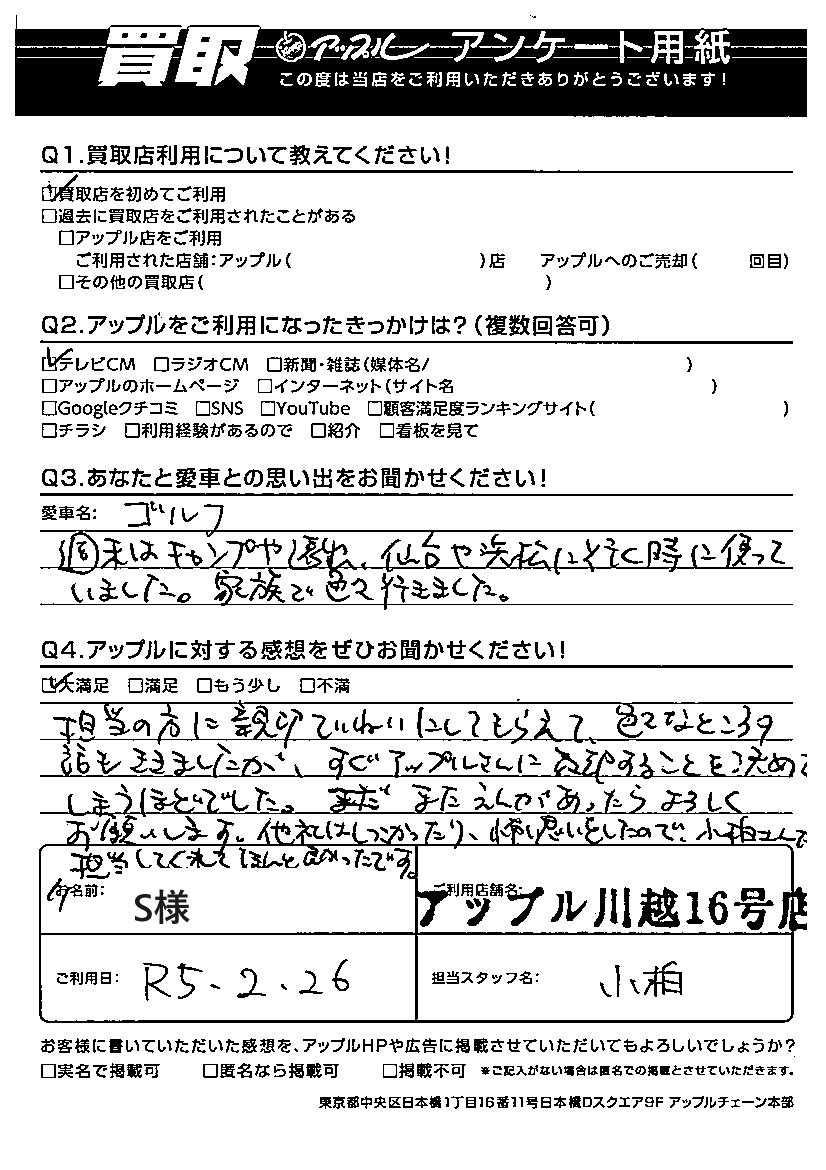 買取 アップル アンケート用紙
この度は当店をご利用いただきありがとうございます!
Q1.買取店利用について教えてください!
☑買取店を初めてご利用
□過去に買取店をご利用されたことがある
□アップル店をご利用
ご利用された店舗:アップル( )店 アップルへのご売却( 回目)
□その他の買取店( )
Q2.アップルをご利用になったきっかけは?(複数回答可)
☑テレビCM □ラジオCM □新聞・雑誌(媒体名/ )
□アップルのホームページ □インターネット(サイト名 )
□Googleクチコミ □SNS □YouTube □顧客満足度ランキングサイト( )
□チラシ □利用経験があるので □紹介 □看板を見て
Q3.あなたと愛車との思い出をお聞かせください!
愛車名: ゴルフ
週末はキャンプや 仙台や浜松に行く時に使って
いました。家族で色々行きました。
Q4.アップルに対する感想をぜひお聞かせください!
☑大満足 □満足 □もう少し □不満
担当の方に親切ていねいにしてもらえて、色々なところの
話もききましたが、すぐアップルさんに売却することを決めて
しまうほどでした。まだ またえんがあったらよろしく
お願いします。他社はしつこかったり、怖い思いをしたので、小柏さんで
担当してくれてほんと良かったです。
お名前: S様
ご利用店舗名: アップル川越16号店
ご利用日: R5.2.26
担当スタッフ名: 小柏
お客様に書いていただいた感想を、アップルHPや広告に掲載させていただいてもよろしいでしょうか?
□実名で掲載可 □匿名なら掲載可 □掲載不可 ※ご記入がない場合は匿名での掲載とさせていただきます。
東京都中央区日本橋1丁目16番11号日本橋Dスクエア9F アップルチェーン本部